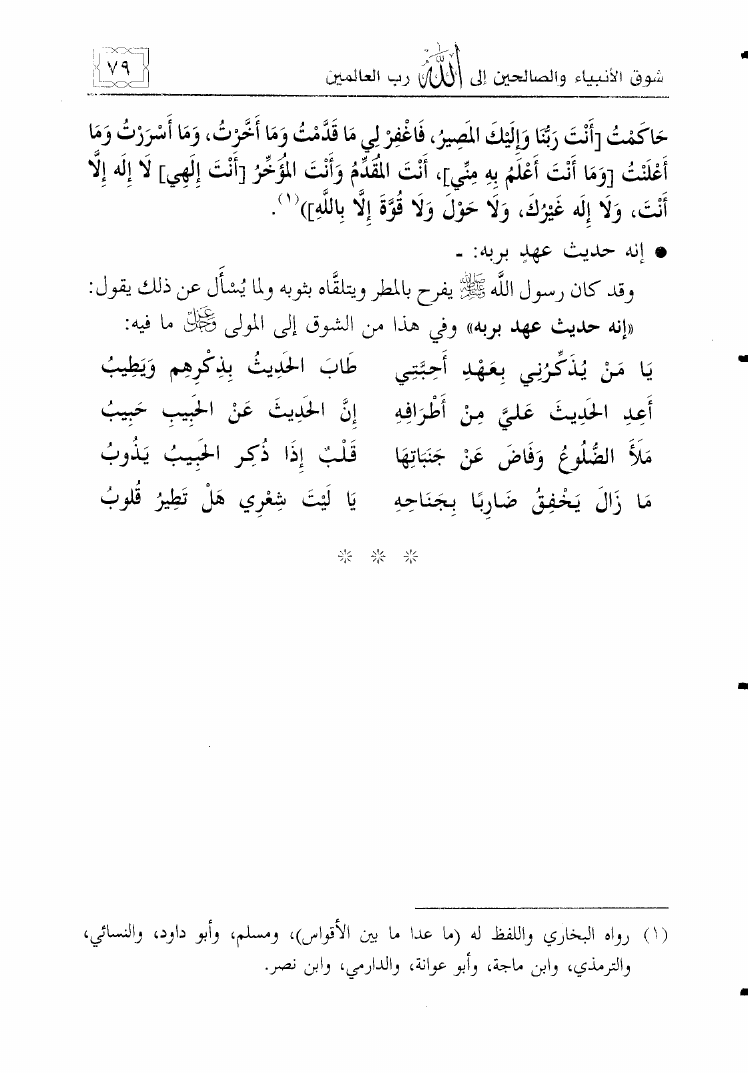 شوق الأنبياء والصالحين إلى الله رب العالمين
٧٩
حَاكَمْتُ [أَنْتَ رَبُّنَا وَإِلَيْكَ المَصِيرُ، فَاغْفِرْ لِي مَا قَدَّمْتُ وَمَا أَخَّرْتُ، وَمَا أَسْرَرْتُ وَمَا
أَعْلَنْتُ [وَمَا أَنْتَ أَعْلَمُ بِهِ مِنِّي]، أَنْتَ المُقَدِّمُ وَأَنْتَ المُؤَخِّرُ [أَنْتَ إِلَهِي] لَا إِلَه إِلَّا
أَنْتَ، وَلَا إِلَه غَيْرُكَ، وَلَا حَوْلَ وَلَا قُوَّةَ إِلَّا بِاللَّهِ])(١).
● إنه حديث عهدٍ بربه: ـ
وقد كان رسول الله ﷺ يفرح بالمطر ويتلقَّاه بثوبه ولما يُسْأَل عن ذلك يقول:
«إنه حديث عهد بربه» وفي هذا من الشوق إلى المولى عَزَّوَجَلَّ ما فيه:
يَا مَنْ يُذَكِّرُنِي بِعَهْدِ أَحِبَّتِي طَابَ الحَدِيثُ بِذِكْرِهِم وَيَطِيبُ
أَعِدِ الحَدِيثَ عَلَيَّ مِنْ أَطْرَافِهِ إِنَّ الحَدِيثَ عَنْ الحَبِيبِ حَبِيبُ
مَلَأَ الضُّلُوعُ وَفَاضَ عَنْ جَنَبَاتِهَا قَلْبٌ إِذَا ذُكِر الحَبِيبُ يَذُوبُ
مَا زَالَ يَخْفِقُ ضَارِبًا بِجَنَاحِهِ يَا لَيْتَ شِعْرِي هَلْ تَطِيرُ قُلوبُ
* * *
(١) رواه البخاري واللفظ له (ما عدا ما بين الأقواس)، ومسلم، وأبو داود، والنسائي،
والترمذي، وابن ماجة، وأبو عوانة، والدارمي، وابن نصر.